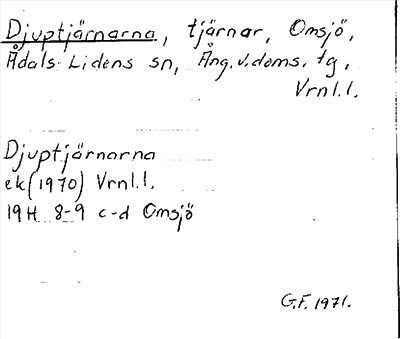 Djuptjärnarna, tjärnar, Omsjö,
Ådals-Lidens sn, Ång.v.doms. tg,
Vrnl.l.
Djuptjärnarna
ek (1970) Vrnl.l.
19H 8-9 c-d Omsjö
G.F. 1971.